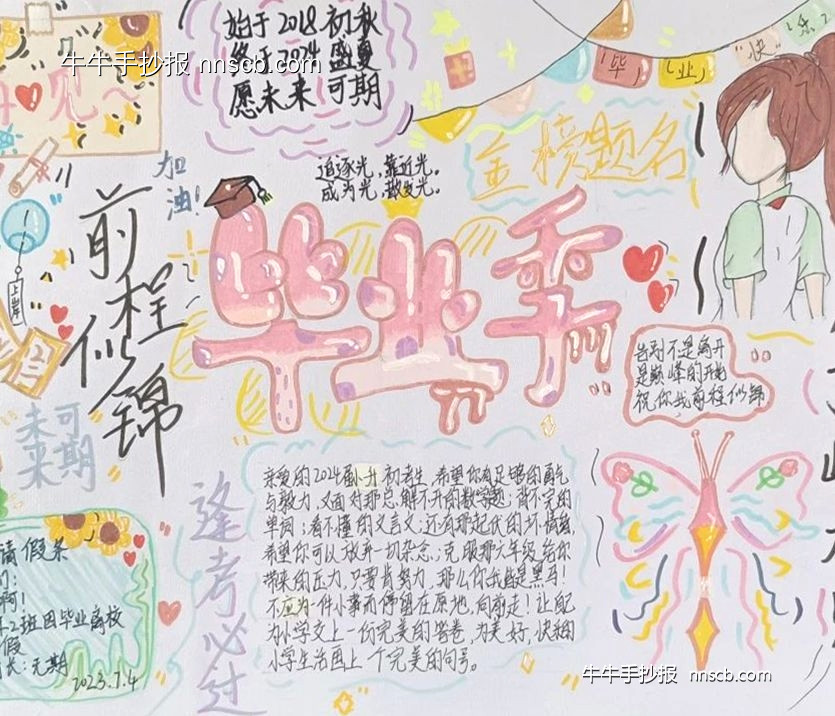 始于2018初秋
终于2024盛夏
愿未来可期
牛牛手抄报 nnscb.com
见~
毕业快乐
金榜题名
加油!
追逐光,靠近光。
成为光,散发光。
毕业季
前程似锦
上岸
未来可期
告别不是离开
是巅峰的开始
祝你我前程似锦
逢考必过
亲爱的2024届小升初考生,希望你有足够的勇气
与毅力,又面对那总解不开的数学题;背不完的
单词;看不懂的文言文;还有那起伏的坏情绪,
希望你可以放弃一切杂念;克服那六年级给你
带来的压力,只要肯努力,那么你我皆是黑马!
不应为一件小事而停留在原地,向前走!让我们
为小学交上一份完美的答卷,为美好,快乐的
小学生活画上一个完美的句号。
请假条
们:
啊!
2班因毕业离校
假
长:无期
2023.7.4
牛牛手抄报 nnscb.com